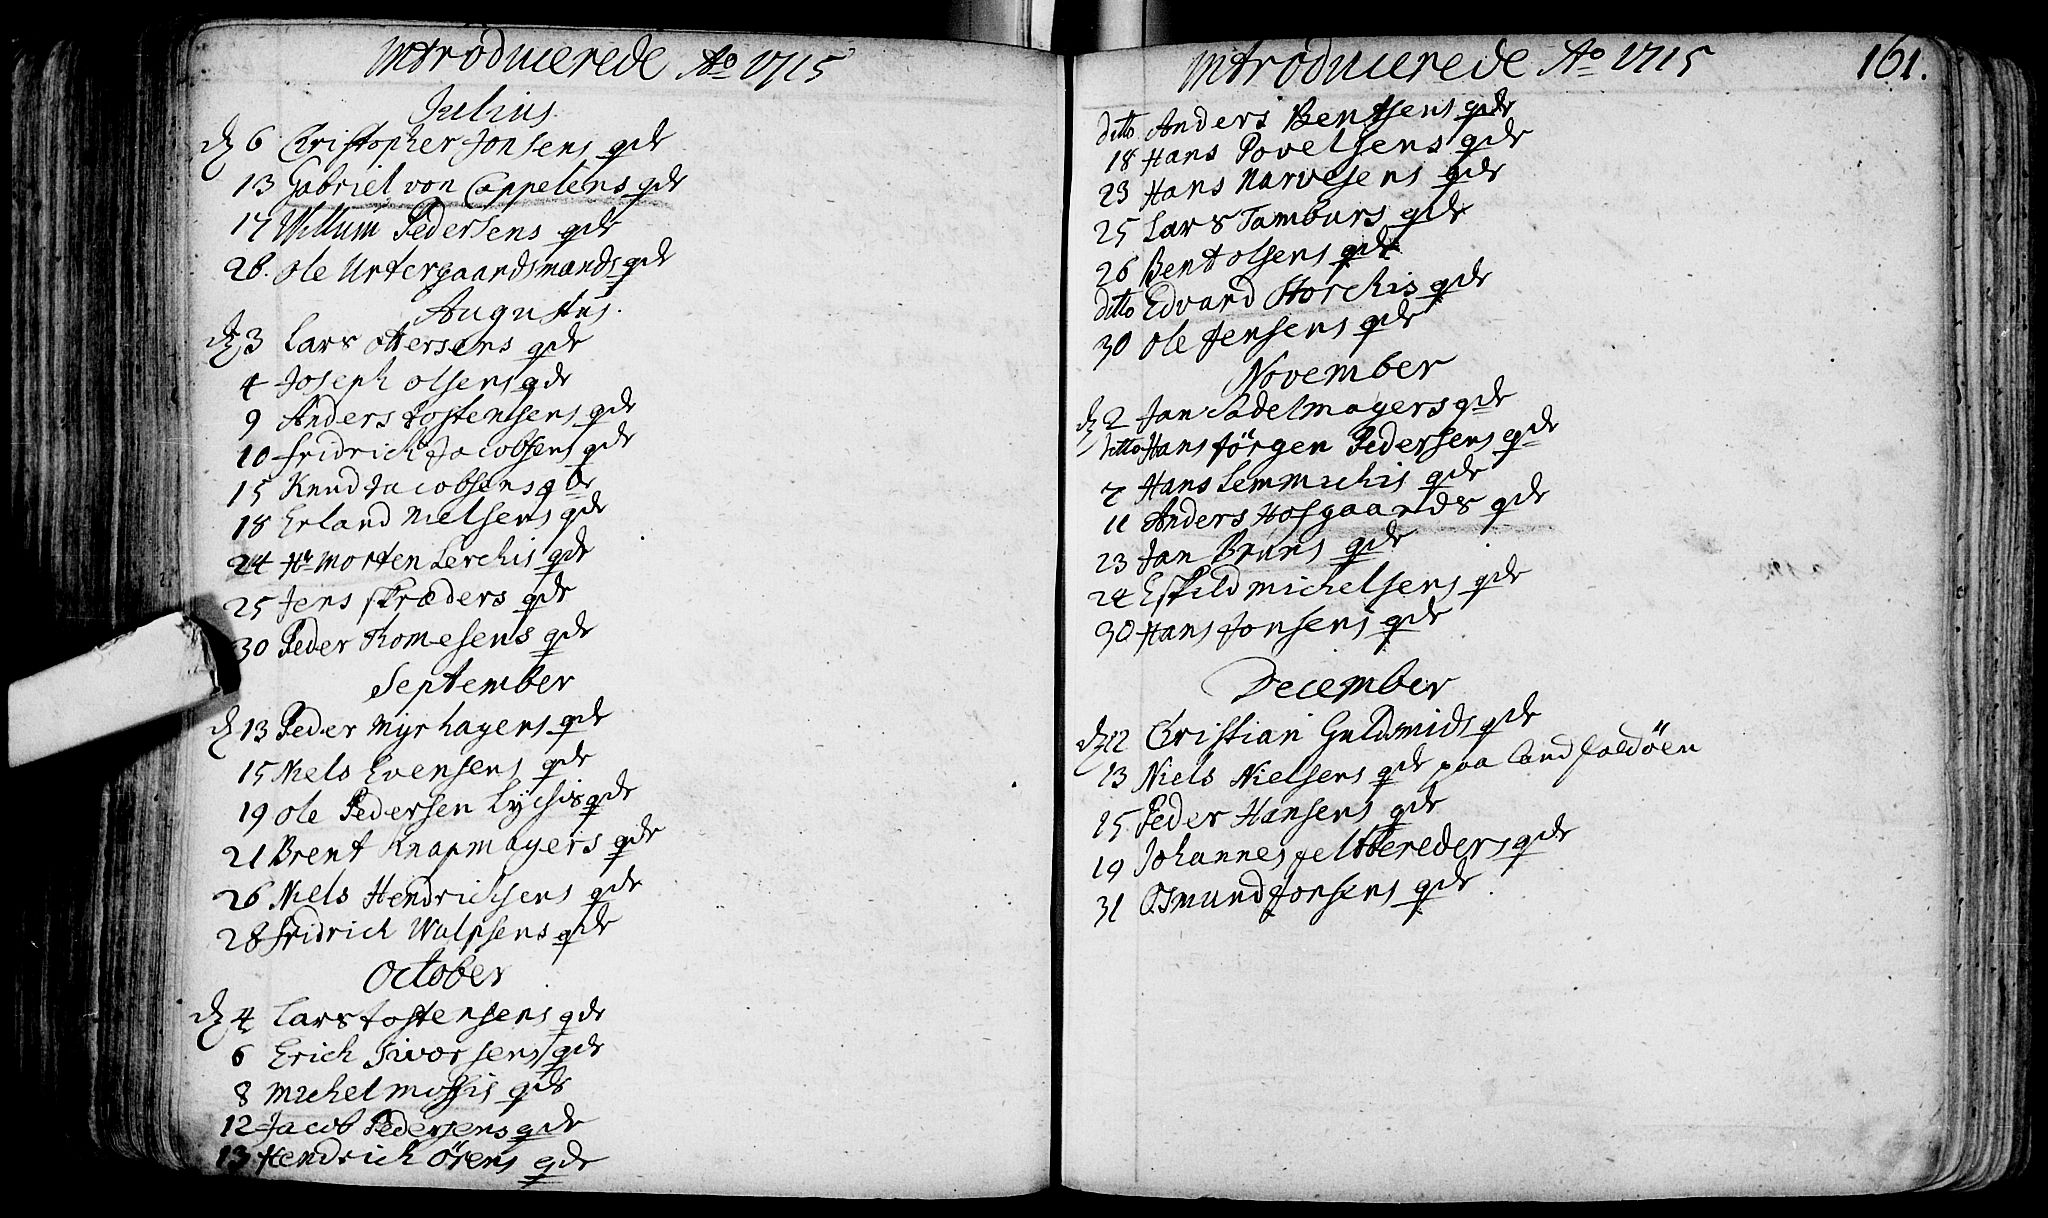 Introducerede Ao 1715
Julius
d 6 Christopher Jonsens qde
13 Gabriel von Cappelens qde
17 Willum Pedersens qde
28. Ole Urtergaardsmands qde
Augustus.
d 3 Lars Ottersens qde
4 Joseph Olsens qde
9 Anders Tostensens qde
10 Fridrich Jacobsens qde
15 Knud Jacobsens qde
18 Erland Nielsens qde
24 Hr Morten Lerchis qde
25 Jens skræders qde
30 Peder Thomesens qde
September
d 13 Peder Myrhagens qde
15 Niels Evensens qde
19 Ole Pedersen Lychis qde
21 Brent Knapmagers qde
26 Niels Hendrichsens qde
28 Fridrich Wulpsens qde
October
d 4 Lars Tostensens qde
6 Erich Sivorsens qde
8 Michel Mossis qde
12 Jacob Pedersens qde
13 Hendrich Örens qde
Introducerede Ao 1715 161.
ditto Anders Bentsens qde
18 Hans Povelsens qde
23 Hans Narvesens qde
25 Lars Tamburs qde
26 Bent Olsens qde
ditto Edvard Storchis qde
30 Ole Jensens qde
November
d 2 Jan Sadelmagers qde
ditto Hans Jörgen Pedersens qde
7 Hans Lemmichis qde
11 Anders Hofgaards qde
23 Jan Bruns qde
24 Eskild Michelsens qde
30 Hans Jonsens qde
December
d 12 Christian Guldsmids qde
13 Niels Nielsens qde paa Landfaldöen
15 Peder Hansens qde
19 Johannes feltbereders qde
31 Osmund Jonsens qde